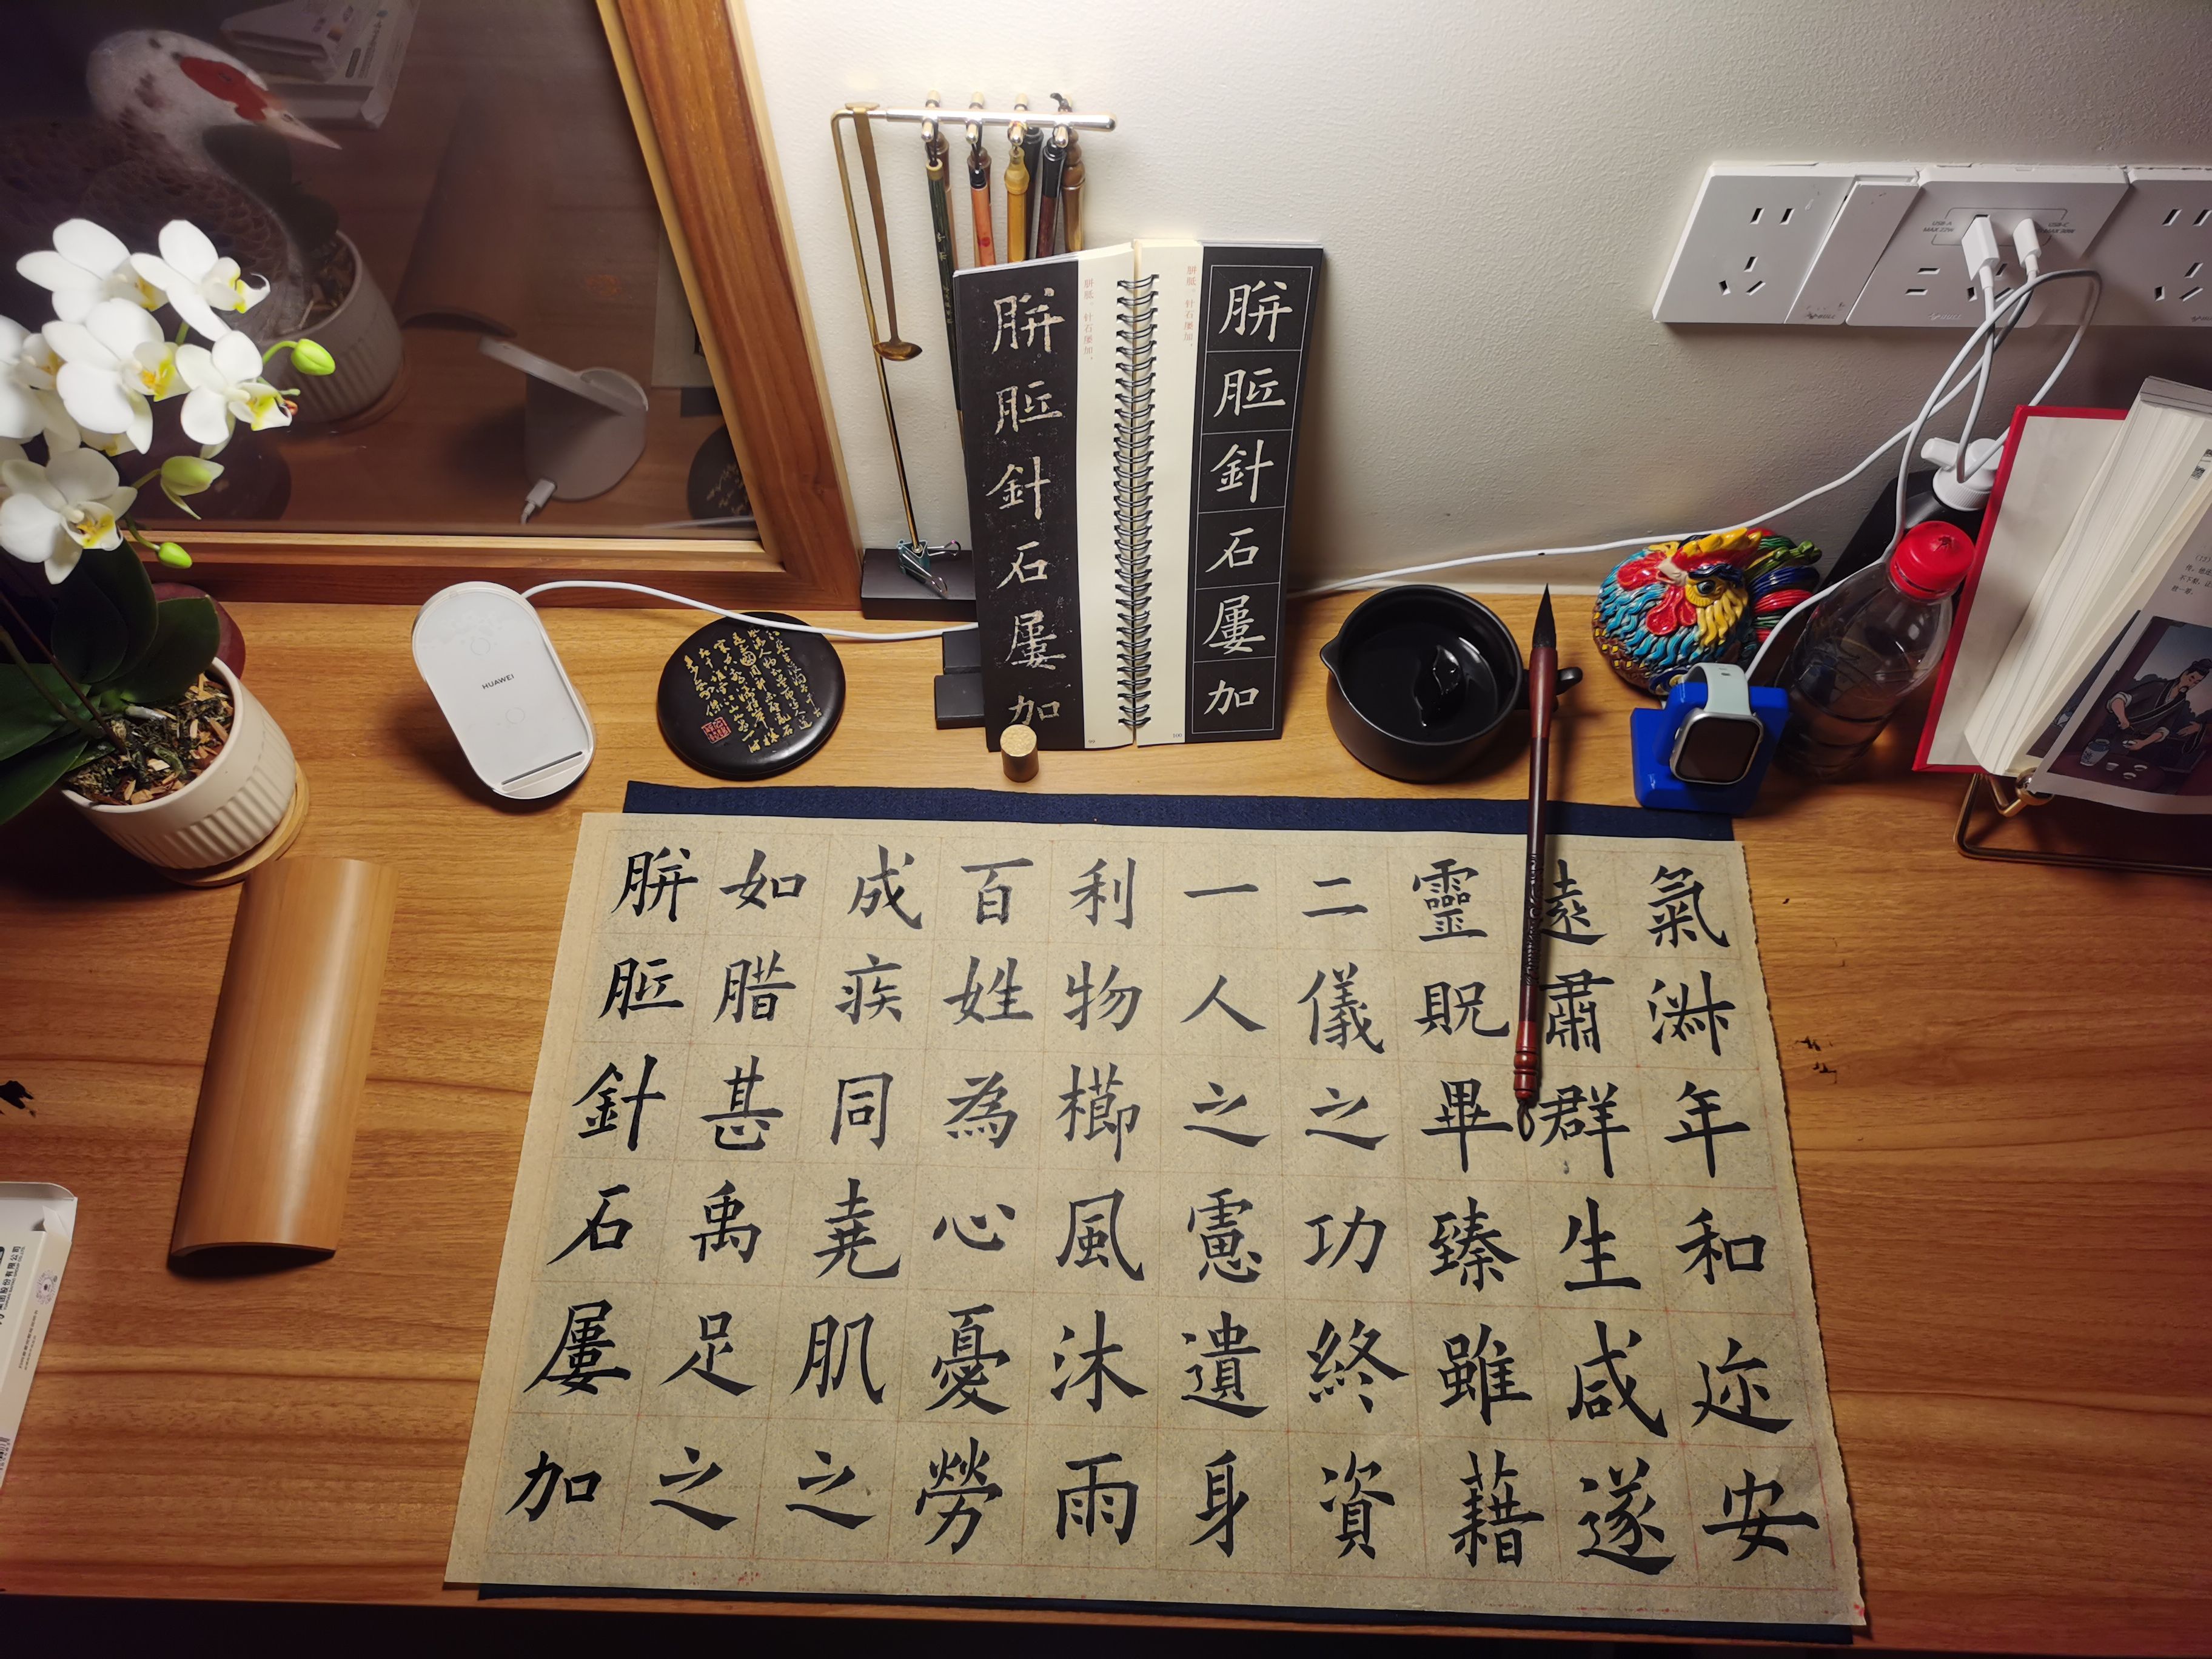 胼胝針石屢加
胼胝。针石屡加，
胼胝。针石屡加，
胼胝針石屢加
100
USB-A
MAX 22W
USB-C
MAX 30W
BULL
BULL
HUAWEI
氣淑年和迩安
遠肅群生咸遂
靈貺畢臻雖藉
二儀之功終資
一人之慮遺身
利物櫛風沐雨
百姓為心憂勞
成疾同堯肌之
如腊甚禹足之
胼胝針石屢加
股份有限公司